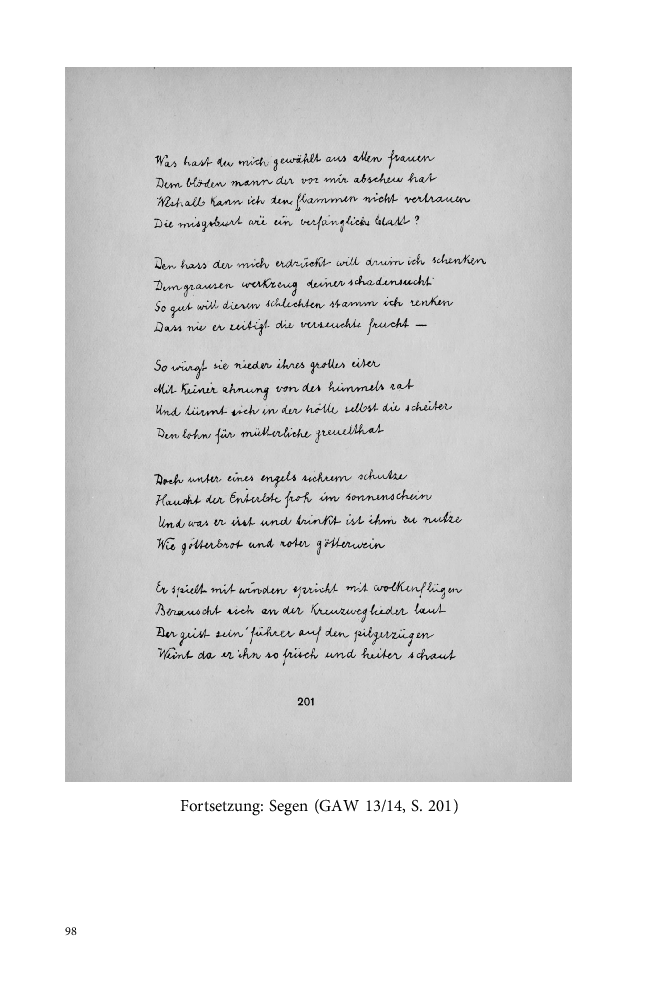 Was hast du mich gewählt aus allen frauen
Dem blöden mann der vor mir abscheu hat
Weshalb kann ich den flammen nicht vertrauen
Die misgeburt wie ein verfänglich blatt?
Den hass der mich erdrückt will drum ich schenken
Dem grausen werkzeug deiner schadensucht
So gut will diesen schlechten stamm ich renken
Dass nie er zeitigt die verseuchte frucht —
So würgt sie nieder ihres grolles eiter
Mit keiner ahnung von des himmels rat
Und türmt sich in der hölle selbst die scheiter
Den lohn für mütterliche greuelthat
Doch unter eines engels sichrem schutze
Haucht der Enterbte froh im sonnenschein
Und was er isst und trinkt ist ihm zu nutze
Wie götterbrot und roter götterwein
Er spielt mit winden spricht mit wolkenflügen
Berauscht sich an der Kreuzweglieder laut
Der geist sein führer auf den pilgerzügen
Weint da er ihn so frisch und heiter schaut
201
Fortsetzung: Segen (GAW 13/14, S. 201)
98